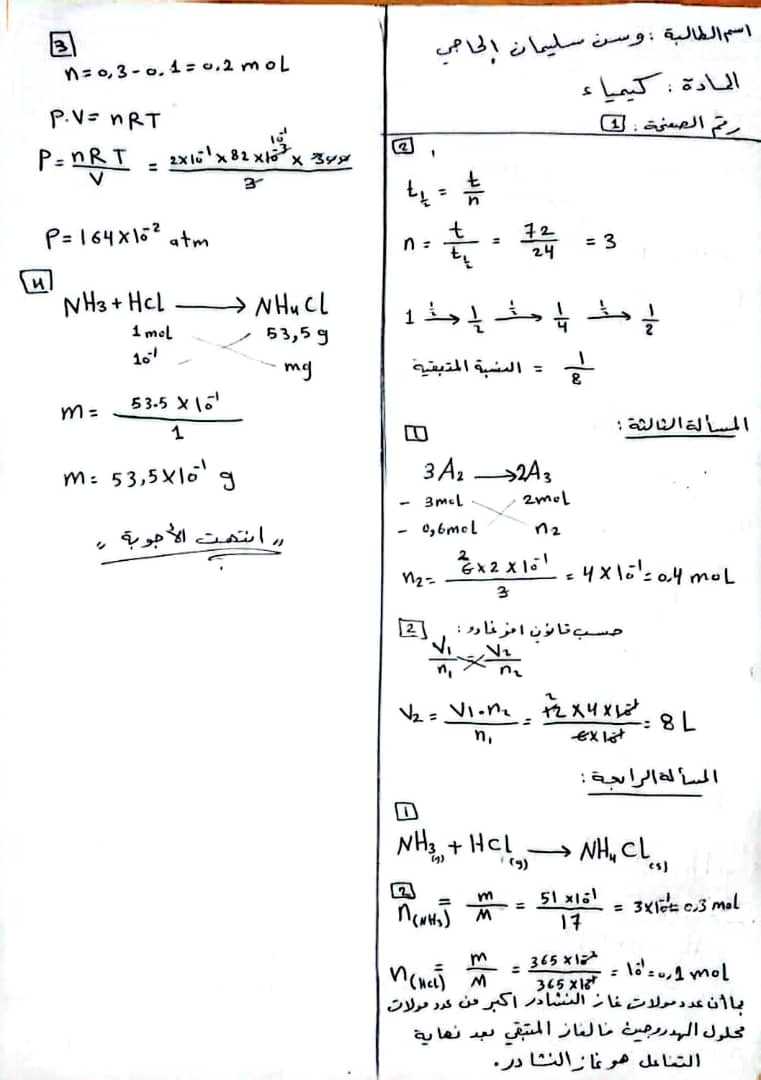 اسم الطالبة : وسن سليمان الحاجي
المادة : كيمياء
رقم الصفحة : 1
2
t½ = t/n
n = t/t½ = 72/24 = 3
1 →(½) 1/2 →(½) 1/4 →(½) 1/2
النسبة المتبقية = 1/8
المسألة الثالثة :
1
3A₂ → 2A₃
- 3mol 2mol
- 0,6mol n₂
n₂ = 6×2×10⁻¹/3 = 4×10⁻¹ = 0,4 moL
2 حسب قانون افوغادرو :
V₁/n₁ = V₂/n₂
V₂ = V₁·n₂/n₁ = 12×4×10⁻¹/6×10⁻¹ = 8 L
المسألة الرابعة :
1
NH₃(g) + HCl(g) → NH₄CL(s)
2
n(NH₃) = m/M = 51×10⁻¹/17 = 3×10⁻¹ = 0,3 mol
n(HCl) = m/M = 365×10⁻²/365×10⁻¹ = 10⁻¹ = 0,1 mol
بما أن عدد مولات غاز النشادر اكبر من عدد مولات
محلول الهدروجين فالغاز المتبقي بعد نهاية
التفاعل هو غاز النشادر.
3
n = 0,3 - 0,1 = 0,2 moL
P.V = nRT
P = nRT/V = 2×10⁻¹×82×10⁻³×300/3
P = 164×10⁻² atm
4
NH₃ + HCl → NH₄Cl
1 mol 53,5 g
10⁻¹ mg
m = 53.5×10⁻¹/1
m = 53,5×10⁻¹ g
,, انتهت الأجوبة ,,